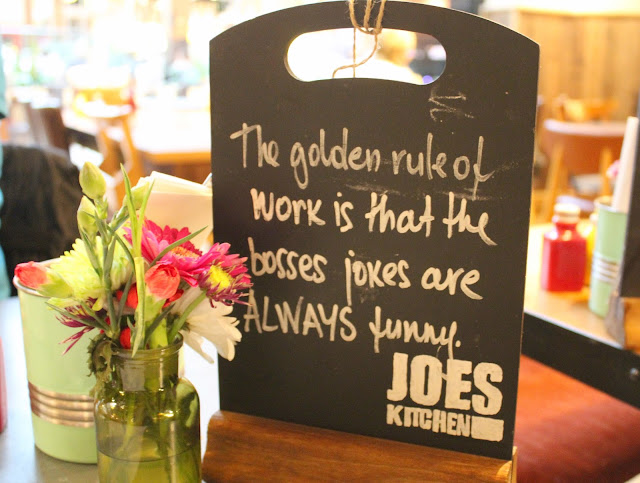 The golden rule of
work is that the
bosses jokes are
ALWAYS funny.
JOES
KITCHEN